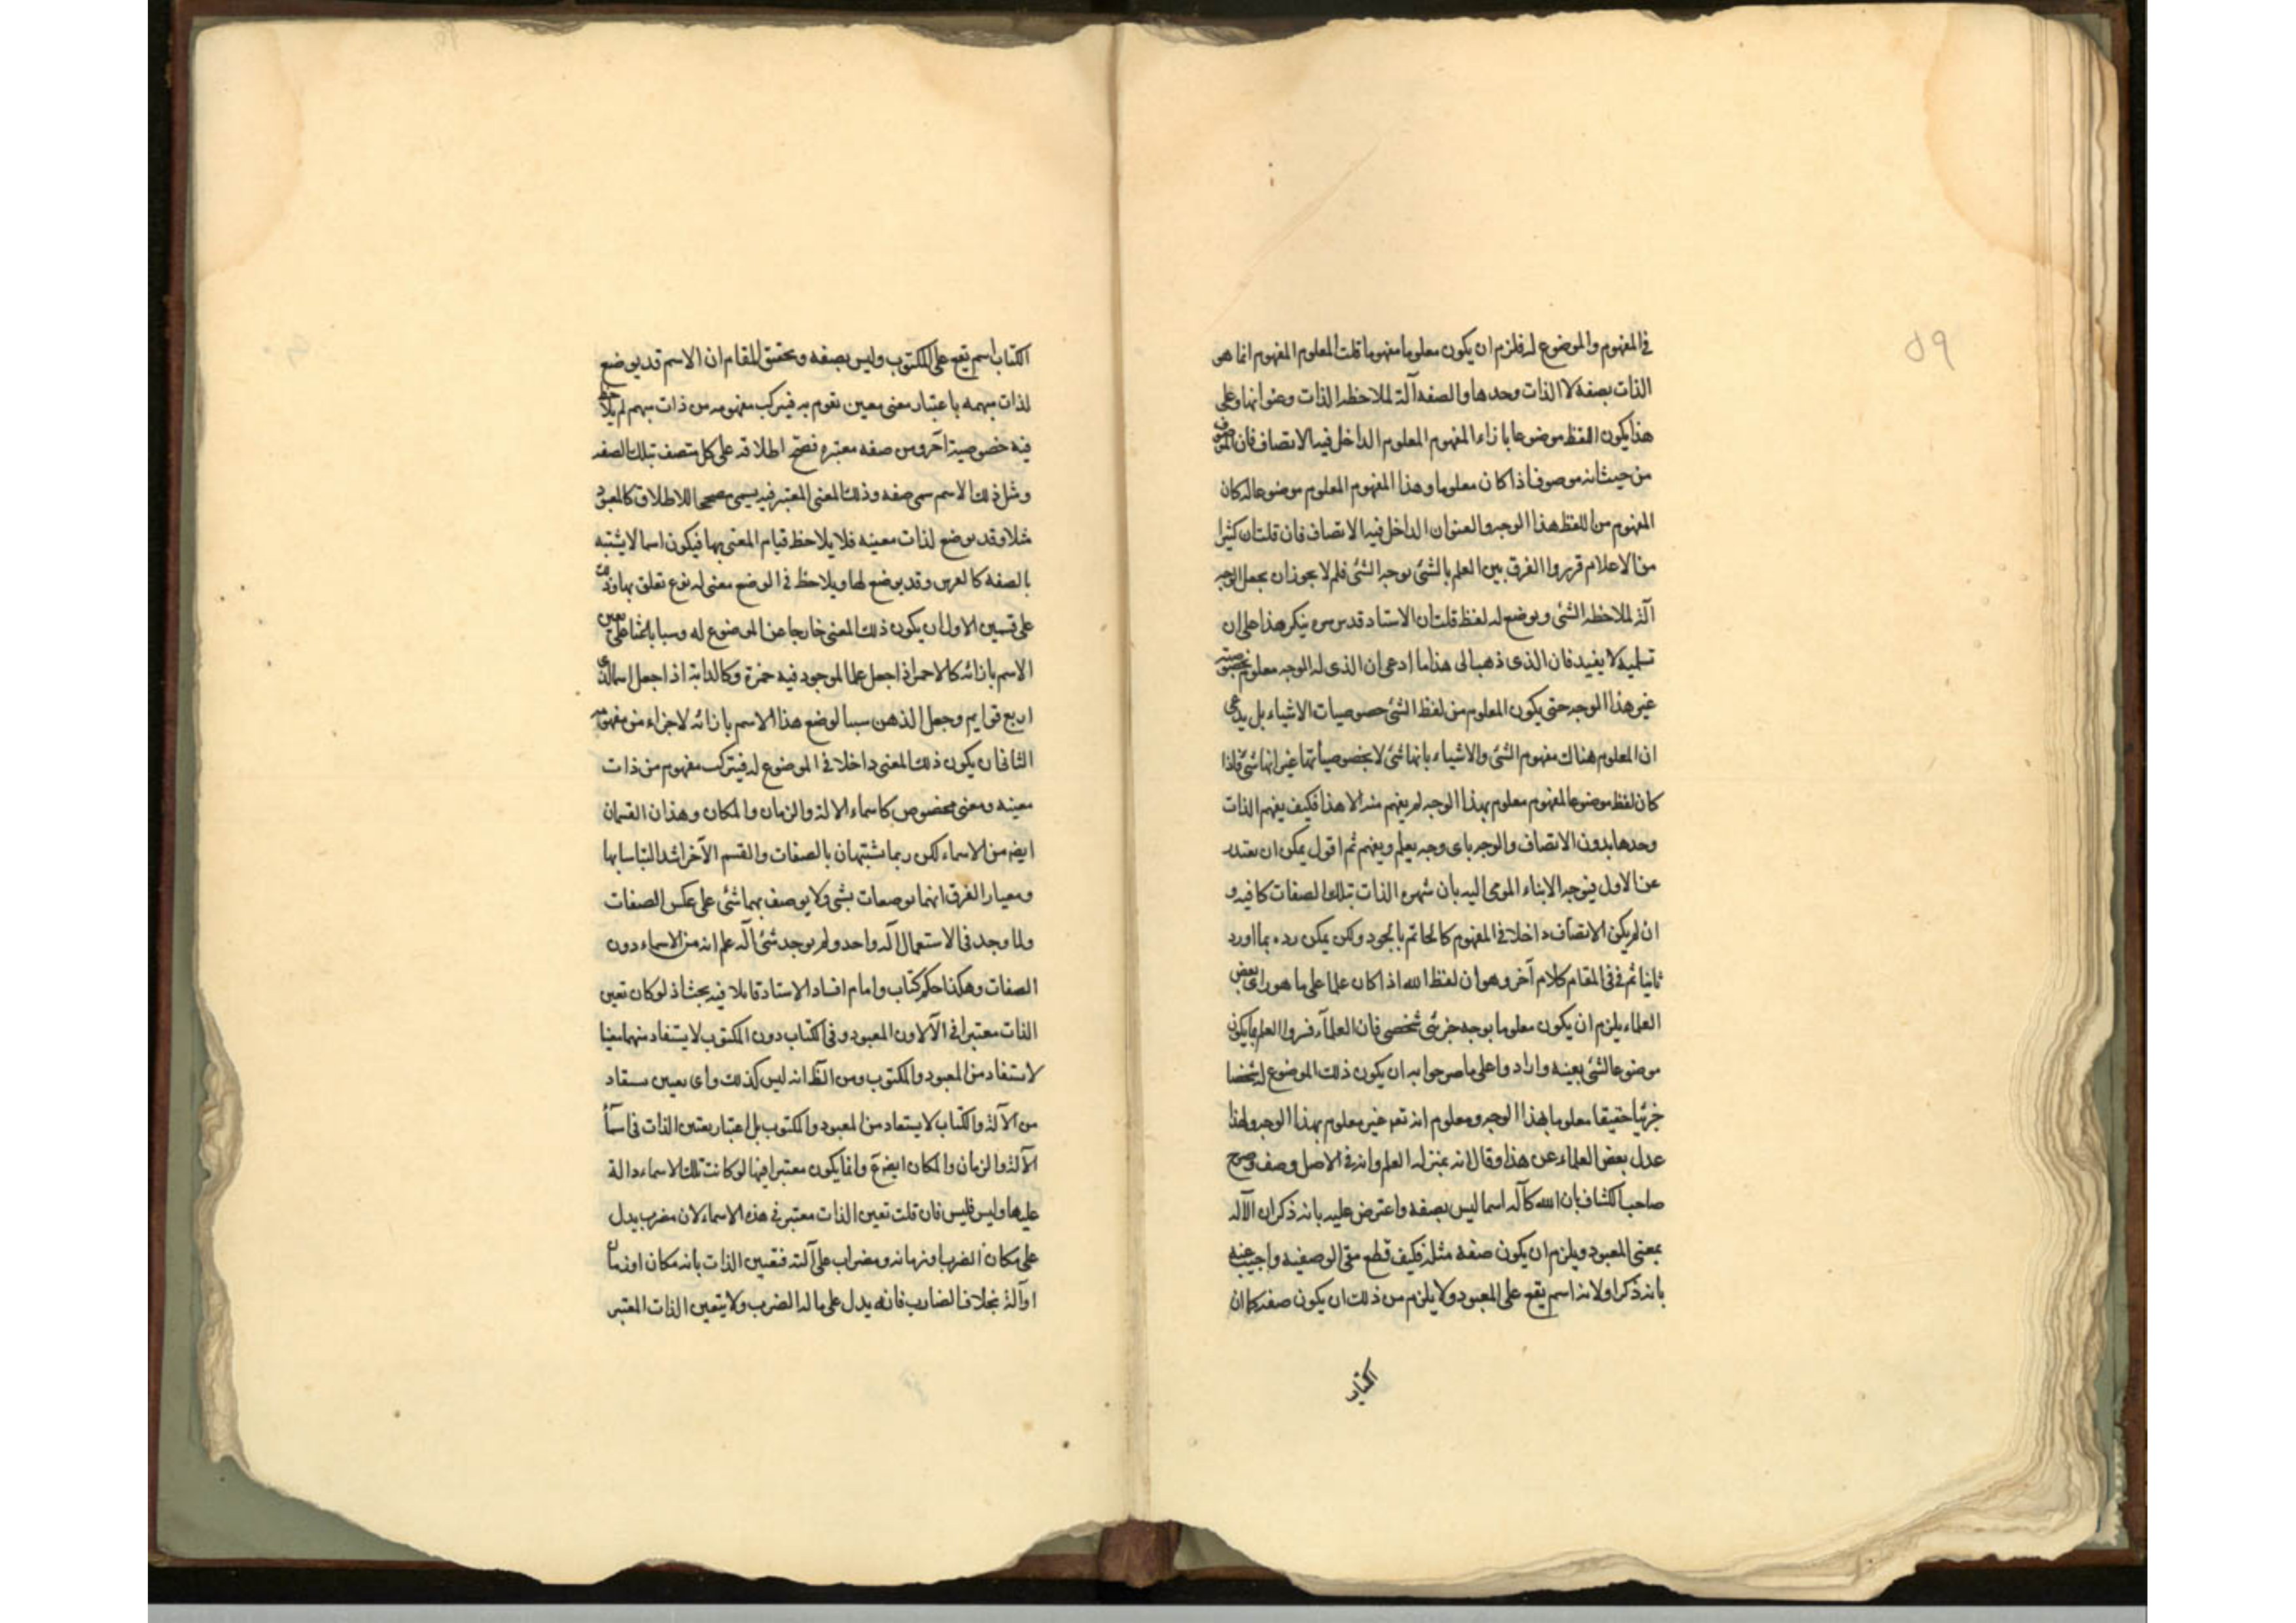 ٥٩
في المفهوم والموضوع له فلزم ان يكون معلوما مفهوما قلت المعلوم المفهوم انما هو
الذات بصفة لا الذات وحدها والصفه آلة لملاحظه الذات وعنوانها وعلى
هذا يكون اللفظ موضوعا بازاء المفهوم المعلوم الداخل فيه الاتصاف فان الموصوف
من حيث انه موصوف اذا كان معلوما وهذا المفهوم المعلوم موضوعا له كان
المفهوم من اللفظ هذا الوجه والعنوان الداخل فيه الاتصاف فان قلت ان كثيرا
من الاعلام قرروا الفرق بين العلم بالشئ بوجه الشئ فلم لا يجوز ان يجعل الوجه
آلة لملاحظه الشئ ويوضع له لفظ قلت ان الاستاد قدس سره ينكر هذا على ان
تسليمه لا يفيد فان الذى ذهب الى هذا ما ادعى ان الذى له الوجه معلوم بخصوصيته
غير هذا الوجه حتى يكون المعلوم من لفظ الشئ خصوصيات الاشياء بل يدعى
ان المعلوم هناك مفهوم الشئ والاشياء بانها شئ لا بخصوصياتها غير انها شئ فاذا
كان لفظ موضوعا لمفهوم معلوم بهذا الوجه لم يفهم منه الا هذا فكيف يفهم الذات
وحدها بدون الاتصاف والوجه باى وجه يعلم ويفهم ثم اقول يمكن ان يعتذر
عن الاول بتوجه الابناء المومى اليه بان شهره الذات بتلك الصفات كافيه و
ان لم يكن الاتصاف داخلا في المفهوم كالحاتم بالجود ولكن يمكن رده بما اورد
ثانيا ثم في المقام كلام آخر وهو ان لفظ الله اذا كان علما على ما هو راى بعض
العلماء يلزم ان يكون معلوما بوجه جزئى شخصى فان العلمآء فسروا العلم بما يكون
موضوعا لشئ بعينه وارادوا على ما صرحوا به ان يكون ذلك الموضوع له شخصا
جزئيا حقيقيا معلوما بهذا الوجه ومعلوم انه تع غير معلوم بهذا الوجه ولهذا
عدل بعض العلماء عن هذا وقال انه بمنزله العلم وانه في الاصل وصف وصرح
صاحب الكشاف بان الله كآله اسما ليس بصفه واعترض عليه بانه ذكر ان الآله
بمعنى المعبود ويلزم ان يكون صفه مثله فكيف قطع الوصفيه واجيب عنه
بانه ذكر اولا انه اسم يقع على المعبود ولا يلزم من ذلك ان يكون صفه كما ان
الكتاب
الكتاب اسم يقع على المكتوب وليس بصفه وتحقيق المقام ان الاسم قد يوضع
لذات مبهمه باعتبار معنى معين تقوم به فيتركب مفهومه من ذات مبهم لم يلاحظ
فيه خصوصية آخر ومن صفه معتبره فصح اطلاقه على كل متصف بتلك الصفه
ومثل ذلك الاسم سمى صفه وذلك المعنى المعتبر فيه يسمى مصححا للاطلاق كالمعبود
مثلا وقد يوضع لذات معينه فلا يلاحظ قيام المعنى بها فيكون اسما لا يشتبه
بالصفه كالفرس وقد يوضع لها ويلاحظ في الوضع معنى له نوع تعلق بها وذلك
على قسمين الاول ان يكون ذلك المعنى خارجا عن الموضوع له وسببا باعثا على تعيين
الاسم بازائه كالاحمر اذا جعل علما لموجود فيه حمرة وكالدابة اذا جعل اسما لذى
اربع قوايم وجعل الذهن سببا لوضع هذا الاسم بازائه لا جزاء من مفهومه
الثانى ان يكون ذلك المعنى داخلا في الموضوع له فيتركب مفهوم من ذات
معينه ومعنى مخصوص كاسماء الالة والزمان والمكان وهذان القسمان
ايضه من الاسماء لكن ربما يشتبهان بالصفات والقسم الآخر اشد التباسا بها
ومعيار الفرق انهما يوصفان بشئ ولا يوصف بهما شئ على عكس الصفات
ولما وجد في الاستعمال آله واحد ولم يوجد شئ آله علم انه من الاسماء دون
الصفات وهكذا حكم كتاب وامام افاد الاستاد قائلا فيه بحث اذ لو كان تعين
الذات معتبرا في الآلاه دون المعبود وفى الكتاب دون المكتوب لاستفاد منهما معينا
لا يستفاد من المعبود والمكتوب ومن الظ انه ليس كذلك واى تعيين يستفاد
من الآلة والكتاب لا يستفاد من المعبود والمكتوب بل اعتبار تعين الذات في اسمآء
الآلة والزمان والمكان ايضه م وانما يكون معتبرا فيها لو كانت تلك الاسماء دالة
عليها وليس فليس فان قلت تعين الذات معتبر في هذه الاسماء لان مضرب يدل
على مكان الضرب او زمانه ومضراب على آلته فتعين الذات بانه مكان او زمان
او آلة بخلاف الضارب فانه يدل على ما له الضرب ولا يتعين الذات المعتبر